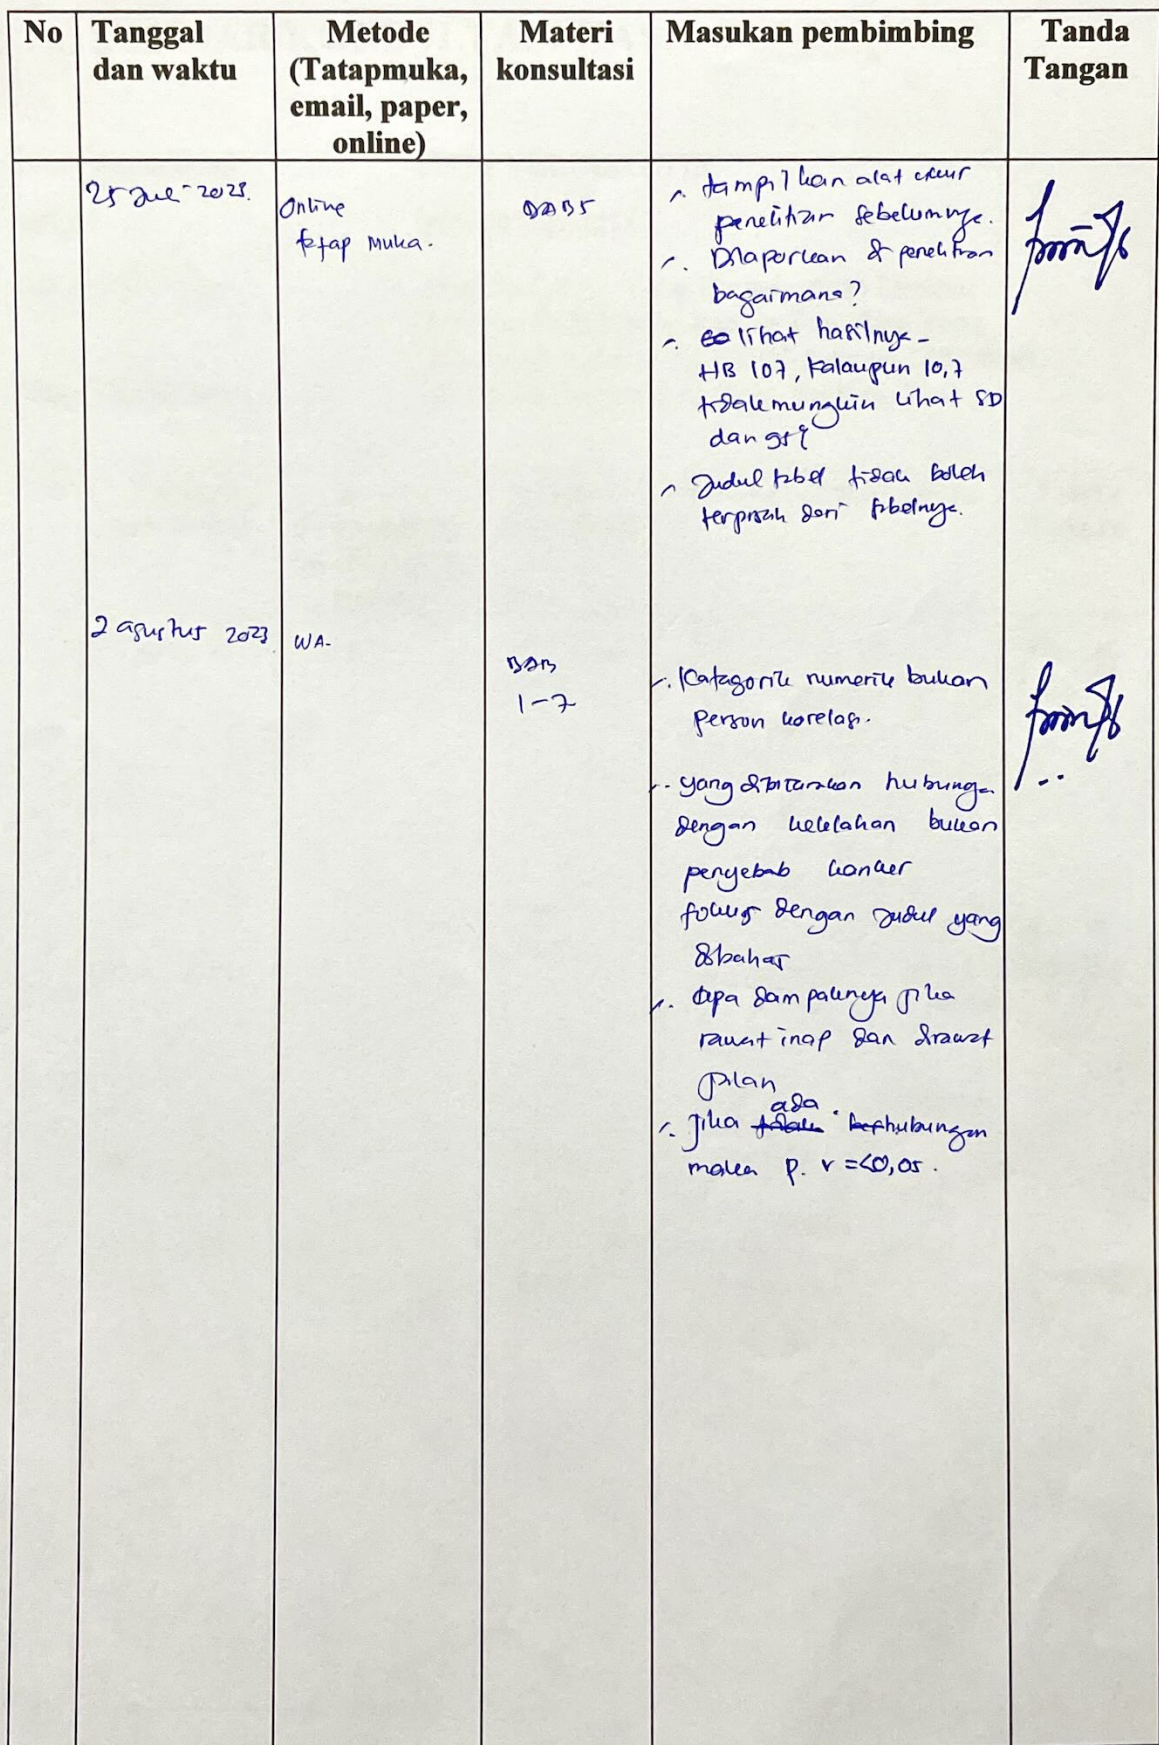 No Tanggal dan waktu Metode (Tatapmuka, email, paper, online) Materi konsultasi Masukan pembimbing Tanda Tangan
25 Juli 2023.
Online
tatap muka.
BAB 5
tampilkan alat ukur
penelitian sebelumnya.
Dilaporkan di penelitian
bagaimana?
lihat hasilnya -
HB 107, kalaupun 10,7
tidak mungkin lihat SD
dan
Judul tabel tidak boleh
terpisah dari tabelnya.
2 agustus 2023
WA.
BAB
1-7
Katagorik numerik bukan
person korelasi.
yang dibicarakan hubunga
dengan kelelahan bukan
penyebab kanker
fokus dengan judul yang
dibahas
Apa dampaknya jika
rawat inap dan dirawat
jalan
ada
jika tidak berhubungan
maka p. v =<0,05.